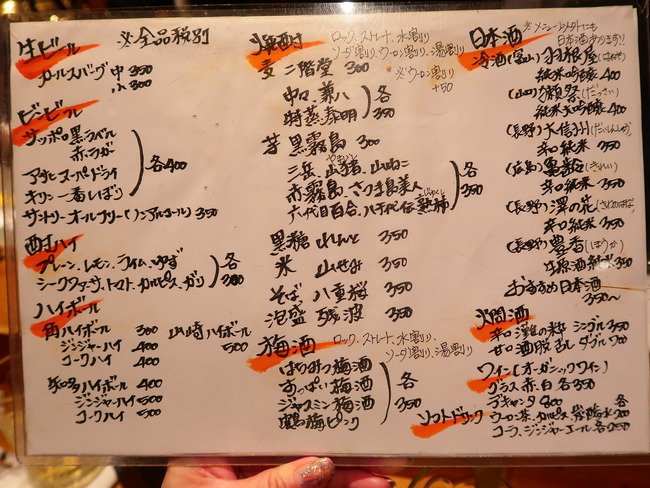 生ビール
※全品税別
カールスバーグ 中 350
小 300
ビンビール
サッポロ黒ラベル
赤ラガー
アサヒスーパードライ
キリン一番しぼり
各400
サントリーオールフリー(ノンアルコール) 350
酎ハイ
プレーン、レモン、ライム、ゆず
シークヮーサ、トマト、カルピス、ガリ
各
300
ハイボール
角ハイボール 300
ジンジャーハイ 400
コークハイ 400
山崎ハイボール
500
知多ハイボール 400
ジンジャーハイ 500
コークハイ 500
焼酎
ロック、ストレート、水割り
ソーダ割り、ウーロン割り、湯割り
※ウーロン割り
+50
麦 二階堂 300
中々 兼八
特蒸泰明
各
350
芋 黒霧島 300
三岳、山猪、山ねこ
赤霧島、さつま島美人
六代目百合、八千代伝熟柿
各
350
黒糖 れんと 350
米 山せみ 350
そば 八重桜 350
泡盛 残波 350
梅酒
ロック、ストレート、水割り
ソーダ割り、湯割り
はちみつ梅酒
すっぱい梅酒
ジャスミン梅酒
鶴梅ピンク
各
350
日本酒
※メニュー以外にも
日本酒あります!!
冷酒(富山)羽根屋(はねや)
純米吟醸 400
(山口)獺祭(だっさい)
純米大吟醸 400
(長野)大信州(だいしんしゅう)
辛口純米 350
(広島)
辛口純米 350
(長野)澤の花(さわのはな)
辛口純米 350
(長野)豊香(ほうか)
生原酒純米 350
おすすめ日本酒
350〜
燗酒
辛口 灘の粋 シングル 350
甘口 ダブル 700
ワイン(オーガニックワイン)
グラス 赤 白 各350
デキャンタ 800
ソフトドリンク
各
ウーロン茶、カルピス、 200
コーラ、ジンジャーエール 各250